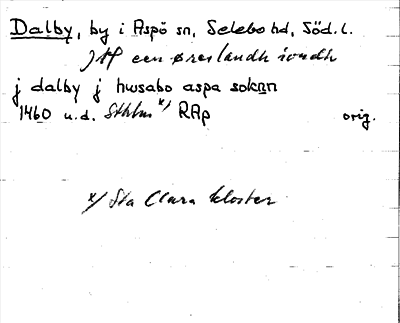 Dalby, by i Aspö sn, Selebo hd, Söd. l.
een øreslandh iordh
j dalby j hwsabo aspa soknn
1460 u.d. Sthlm x) RAp orig.
x) Sta Clara kloster